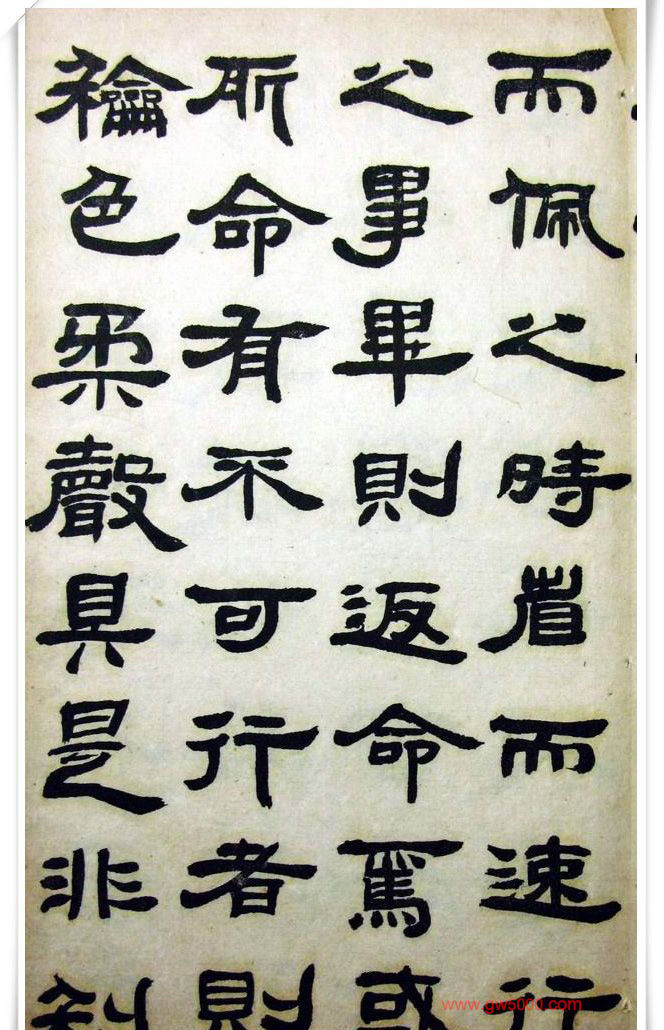 而佩之時省而速行
之事畢則返命焉或
所命有不可行者則
龢色柔聲具是非利